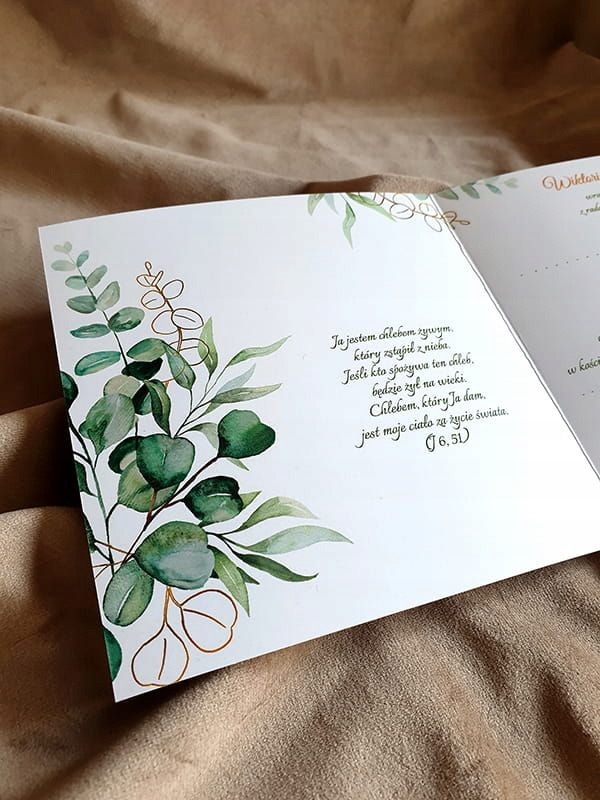 Ja jestem chlebem żywym,
który zstąpił z nieba.
Jeśli kto spożywa ten chleb,
będzie żył na wieki.
Chlebem, który Ja dam,
jest moje ciało za życie świata.
(J 6, 51)
Wiktori
wra
z rado
w kości